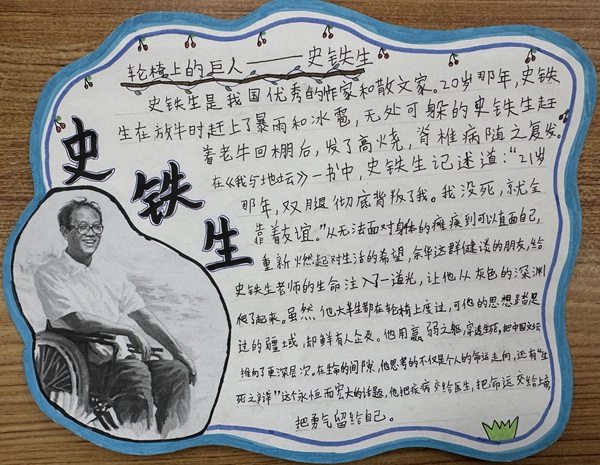 轮椅上的巨人——史铁生
史铁生是我国优秀的作家和散文家。20岁那年,史铁
生在放牛时赶上了暴雨和冰雹,无处可躲的史铁生赶
着老牛回棚后,发了高烧,脊椎病随之复发。
在《我与地坛》一书中,史铁生记述道:“21岁
那年,双腿彻底背叛了我。我没死,就全
靠着友谊。”从无法面对身体的瘫痪到可以直面自己,
重新燃起对生活的希望,余华这群健谈的朋友,给
史铁生老师的生命注入了一道光,让他从灰色的深渊
爬了起来。虽然他大半生都在轮椅上度过,可他的思想踏足
过的疆域,却鲜有人企及。他用羸弱之躯,穿透生死,把中国文坛
推向了更深层次。在生命的间隙,他思考的不仅是个人的命运走向,还有“生
死之辩”这个永恒而宏大的话题,他把疾病交给医生,把命运交给上帝,
把勇气留给自己。
史铁生